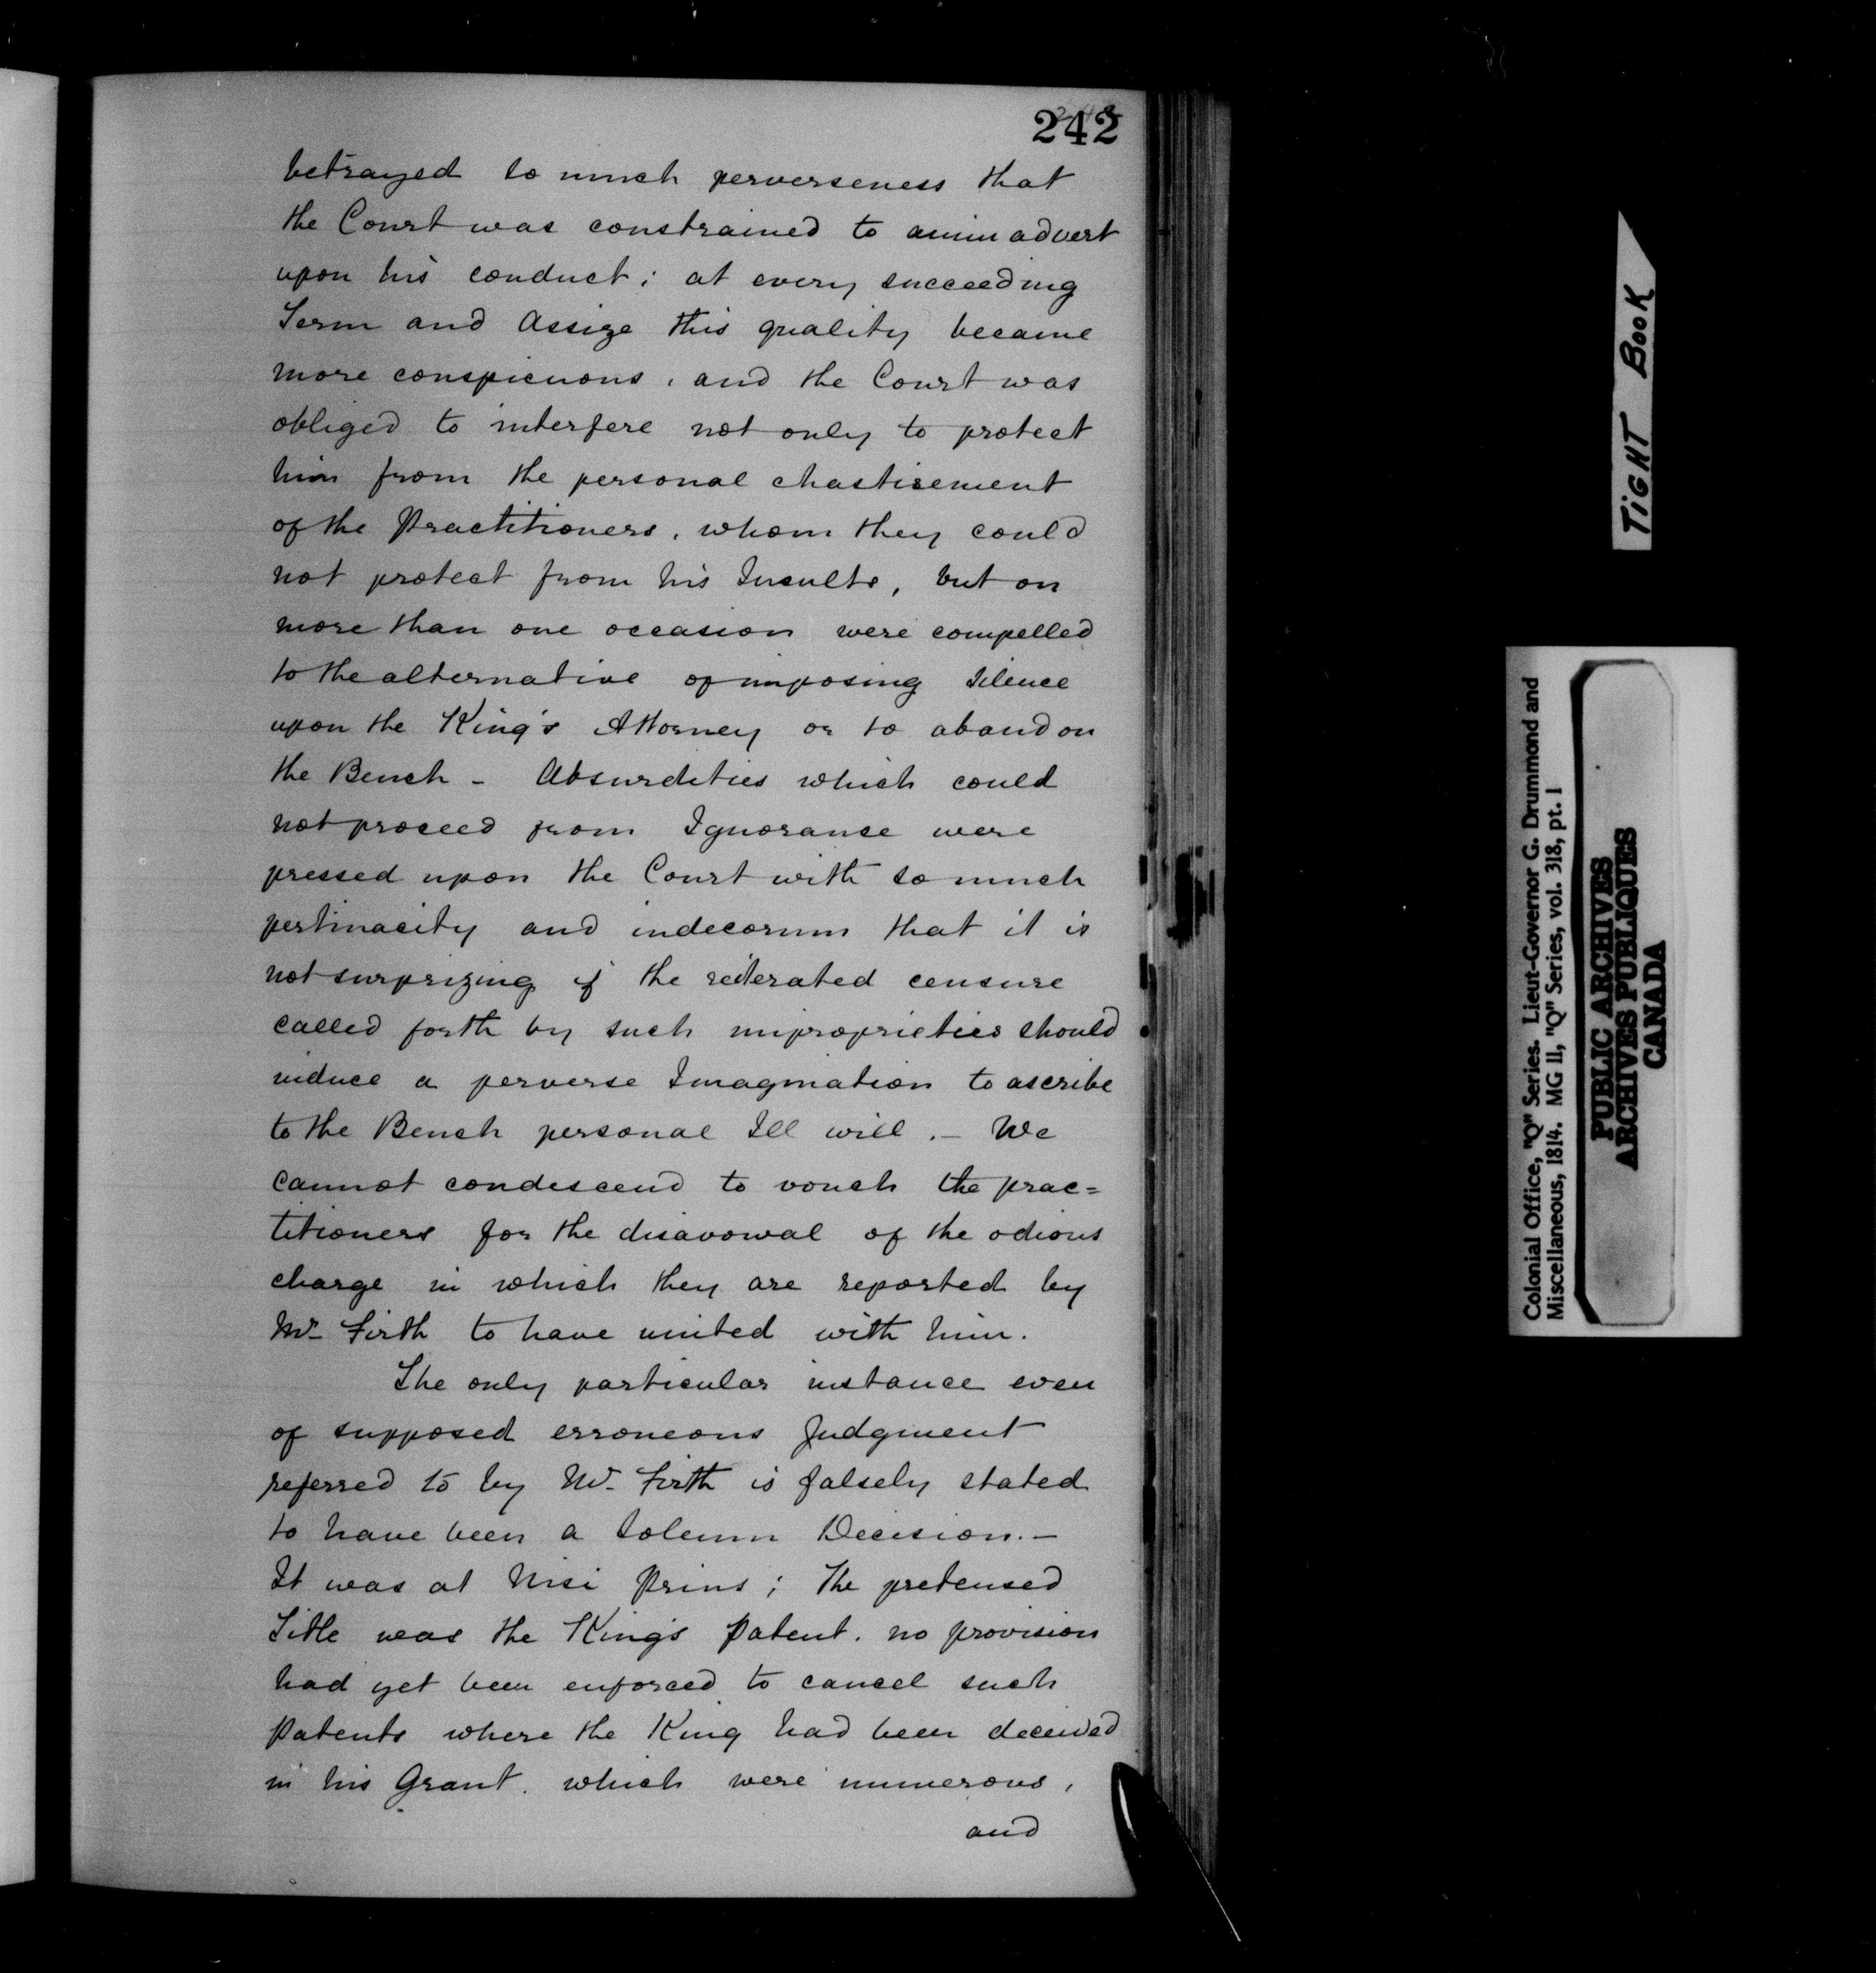 242
betrayed so much perverseness that
the Court was constrained to animadvert
upon his conduct; at every succeeding
Term and Assize this quality became
more conspicuous, and the Court was
obliged to interfere not only to protect
him from the personal chastisement
of the Practitioners, whom they could
not protect from his Insults, but on
more than one occasion were compelled
to the alternative of imposing silence
upon the King's Attorney or to abandon
the Bench - Absurdities which could
not proceed from Ignorance were
pressed upon the Court with so much
pertinacity and indecorum that it is
not surprizing if the reiterated censure
called forth by such improprieties should
induce a perverse Imagination to ascribe
to the Bench personal Ill will. - We
cannot condescend to vouch the prac=
titioners for the disavowal of the odious
charge in which they are reported by
Mr Firth to have united with him.
The only particular instance even
of supposed erroneous Judgment
referred to by Mr Firth is falsely stated
to have been a Solemn Decision. -
It was at Nisi Prius; The pretensed
Title was the King's Patent. no provision
had yet been enforced to cancel such
Patents where the King had been deceived
in his Grant. which were numerous,
and
TIGHT BOOK
Colonial Office, "Q" Series. Lieut-Governor G. Drummond and
Miscellaneous, 1814. MG 11, "Q" Series, vol. 318, pt. 1
PUBLIC ARCHIVES
ARCHIVES PUBLIQUES
CANADA